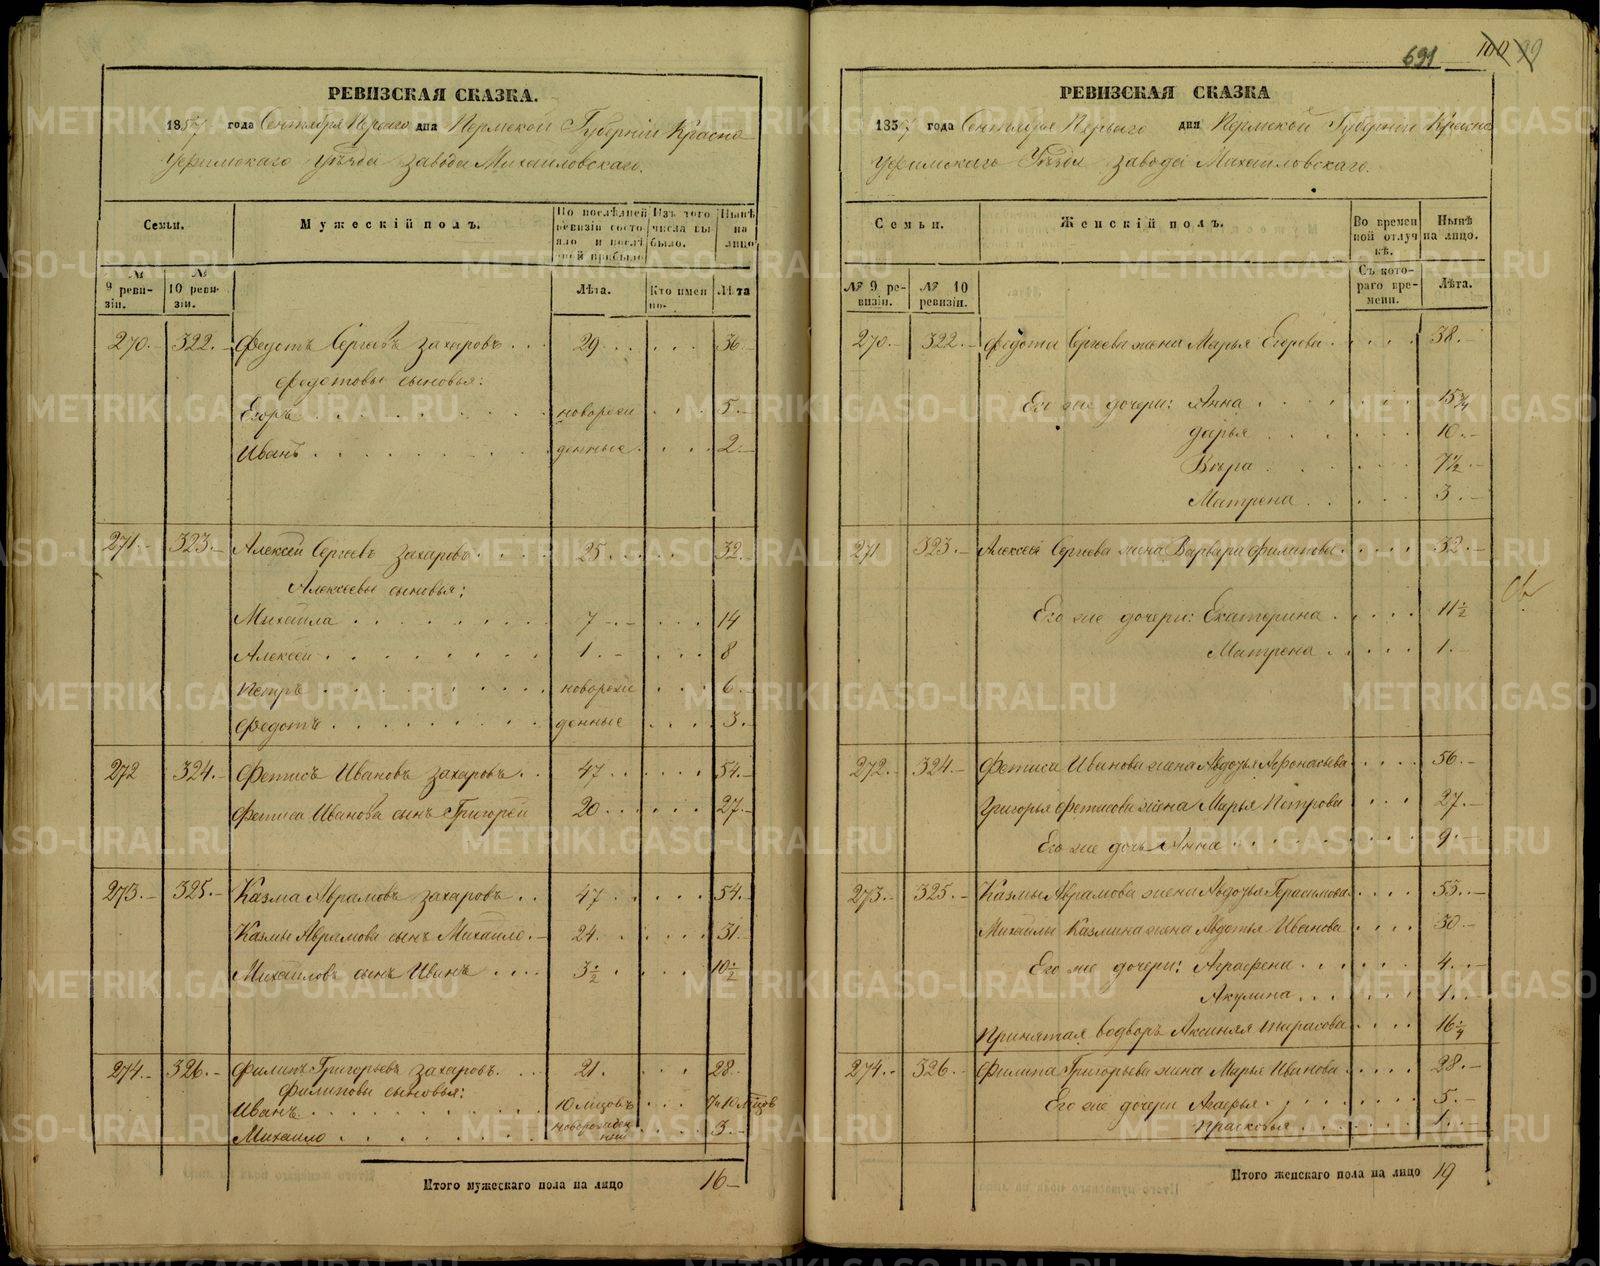 РЕВИЗСКАЯ СКАЗКА.
1857 года Сентября Перваго дня Пермской Губерніи Красно
уфимскаго уѣзда завода Михайловскаго.
Семьи.
Мужескій полъ.
По послѣдней ревизіи состояло и послѣ ней прибыло
Изъ того числа выбыло.
Нынѣ на лицо
№ 9 ревизіи.
№ 10 ревизіи.
Лѣта.
Кто именно.
Лѣта
270. 322. Федотъ Сергѣевъ захаровъ . . . 29 . . . . . 36.
Федотовы сыновья:
Егоръ . . . новорож . . . 5.
Иванъ . . . денные . . . 2.
271. 323. Алексѣй Сергѣевъ захаровъ . . . 25 . . . 32.
Алексѣевы сыновья:
Михайла . . . 7 . . . 14
Алексѣй . . . 1 . . . 8
Петръ . . . новорож . . . 6.
Федотъ . . . денные . . . 3.
272 324. Фетисъ Ивановъ захаровъ . . 47 . . . 54.
Фетиса Иванова сынъ Григорей 20 . . . 27.
273. 325. Казма Аврамовъ захаровъ . . 47 . . . 54.
Казмы Аврамова сынъ Михайло. 24. . . . 31.
Михайловъ сынъ Иванъ . . . . 3 1/2 . . . 10 1/2
274. 326. Филипъ Григорьевъ захаровъ. . . 21. . . . 28.
Филиповы сыновья:
Иванъ . . . 10 мѣсцовъ . . . 7 и 10 мѣсцов
Михайло . . . новорожденный . . . 3.
Итого мужескаго пола на лицо 16
691 100 99
РЕВИЗСКАЯ СКАЗКА
1857 года Сентября Перваго дня Пермской Губерніи Красно
уфимскаго Уѣзда завода Михайловскаго.
Семьи.
Женскій полъ.
Во временной отлучкѣ.
Нынѣ на лицо.
№ 9 ревизіи.
№ 10 ревизіи.
Съ котораго времени.
Лѣта.
270. 322. Федота Сергѣева жена Марья Егорова . . . . 38.
Его же дочери: Анна . . . 15 3/4
дарья . . . 10.
Вѣра . . . 7 1/2
Матрена . . . 3.
271 323. Алексѣя Сергѣева жена Варвара Филипова . . . 32.
Его же дочери: Екатерина . . . 11 1/2
Матрена . . . 1.
272. 324. Фетиса Иванова жена Авдотья Афонасьева . . . 56.
Григорья Фетисова жена Марья Петрова . . . 27.
Его же дочь Анна . . . 9.
273. 325. Казмы Аврамова жена Авдотья Герасимова . . . 53.
Михайлы Казмина жена Авдотья Иванова . . . 30.
Его же дочери: Аграфена . . . 4.
Акулина . . . 1.
Принятая водворъ Аксинья тарасова . . . 16 1/4
274. 326. Филипа Григорьева жена Марья Иванова . . . 28.
Его же дочери Агафья . . . 5.
Прасковья . . . 1.
Итого женскаго пола на лицо 19
METRIKI.GASO-URAL.RU